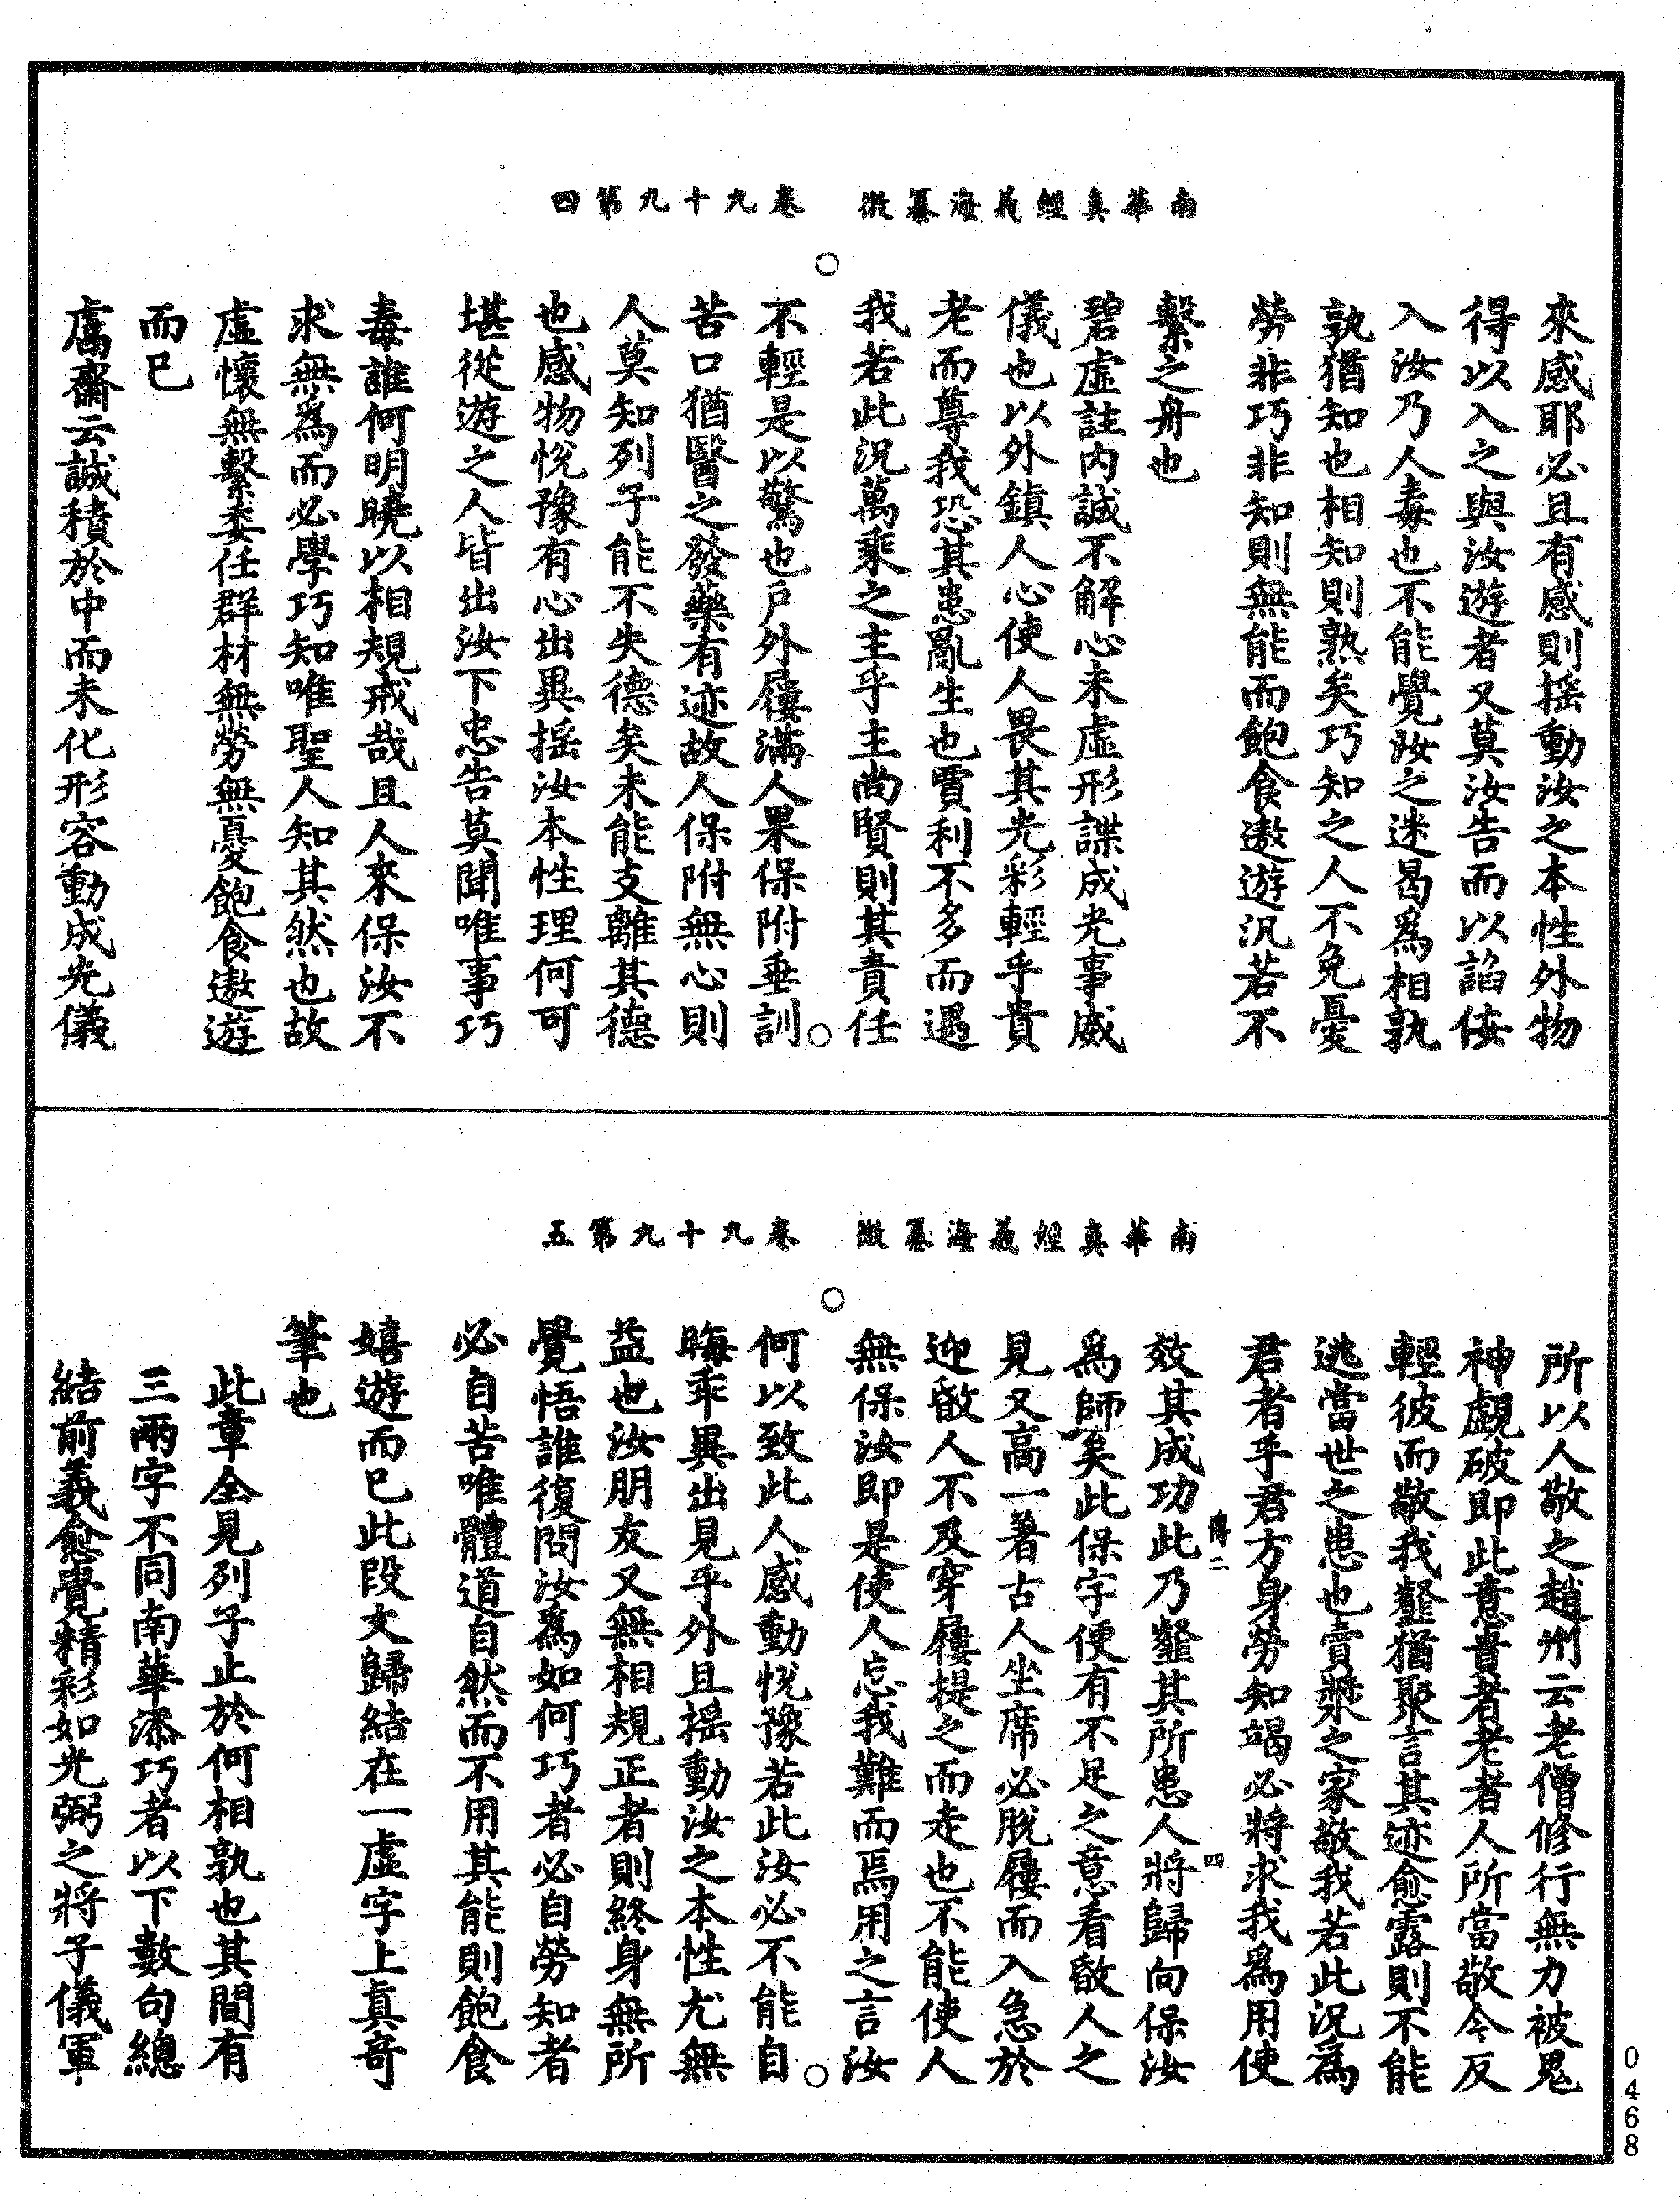 南華真經義海纂微　卷九十九第四
來感耶必且有感則揺動汝之本性外物
得以入之與汝遊者又莫汝告而以諂佞
入汝乃人毒也不能覺汝之迷曷為相孰
孰猶知也相知則熟矣巧知之人不免憂
勞非巧非知則無能而飽食遨遊汎若不
繫之舟也
碧虛註內誠不解心未虛形諜成光事威
儀也以外鎮人心使人畏其光彩輕乎貴
老而尊我恐其患亂生也賈利不多而遇
我若此況萬乘之主乎主尚賢則其責任
不輕是以驚也戶外屨滿人果保附垂訓
苦口猶醫之發藥有迹故人保附無心則
人莫知列子能不失德矣未能支離其德
也感物悅豫有心出異揺汝本性理何可
堪從遊之人皆出汝下忠告莫聞唯事巧
毒誰何明曉以相規戒哉且人來保汝不
求無為而必學巧知唯聖人知其然也故
虛懷無繫委任群材無勞無憂飽食遨遊
而已
鬳齋云誠積於中而未化形容動成光儀
南華真經義海纂微　卷九十九第五
所以人敬之趙州云老僧修行無力被鬼
神覷破即此意貴者老者人所當敬今反
輕彼而敬我䪡猶聚言其迹愈露則不能
逃當世之患也賣漿之家敬我若此況為
君者乎君方身勞知竭必將求我為用使
效其成功此乃䪡其所患人將歸向保汝
傳二
四
為師矣此保字便有不足之意看敵人之
見又高一著古人坐席必脫屨而入急於
迎敵人不及穿屨提之而走也不能使人
無保汝即是使人忘我難而焉用之言汝
何以致此人感動悅豫若此汝必不能自
晦乖異出見乎外且揺動汝之本性尤無
益也汝朋友又無相規正者則終身無所
覺悟誰復問汝為如何巧者必自勞知者
必自苦唯體道自然而不用其能則飽食
嬉遊而已此段文歸結在一虛字上真奇
筆也
此章全見列子止於何相孰也其間有
三兩字不同南華添巧者以下數句總
結前義愈覺精彩如光弼之將子儀軍
0468